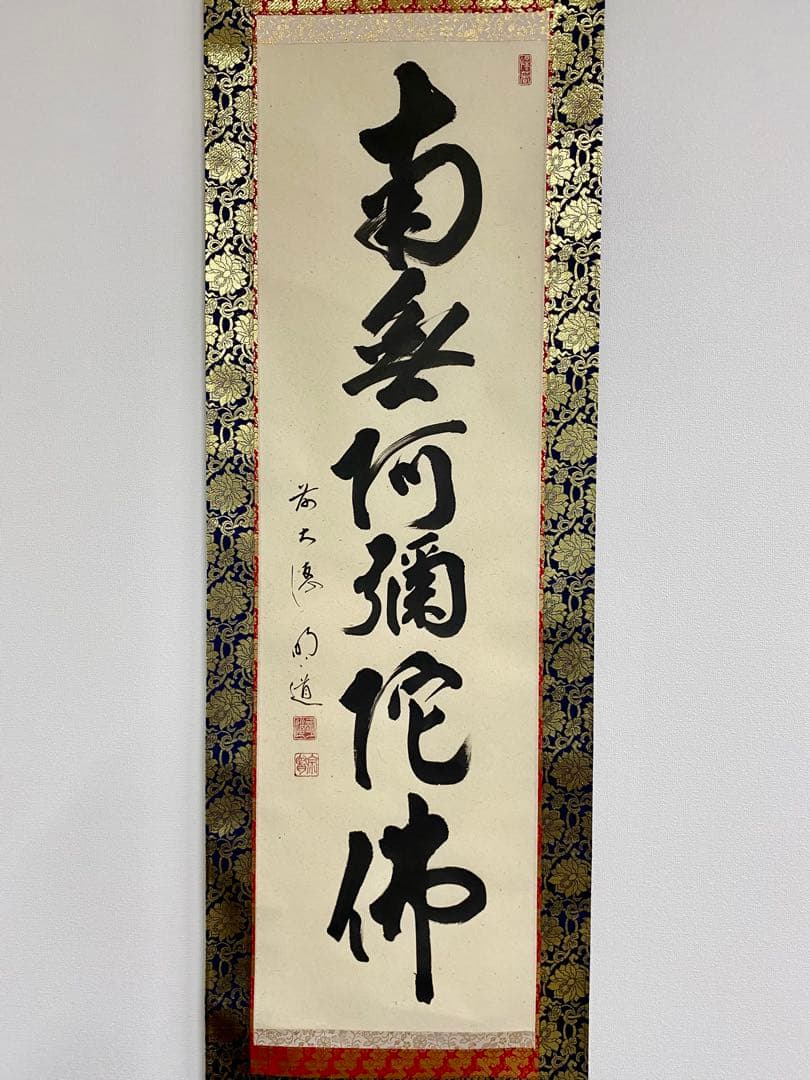 南無阿彌陀佛
前大徳 明道